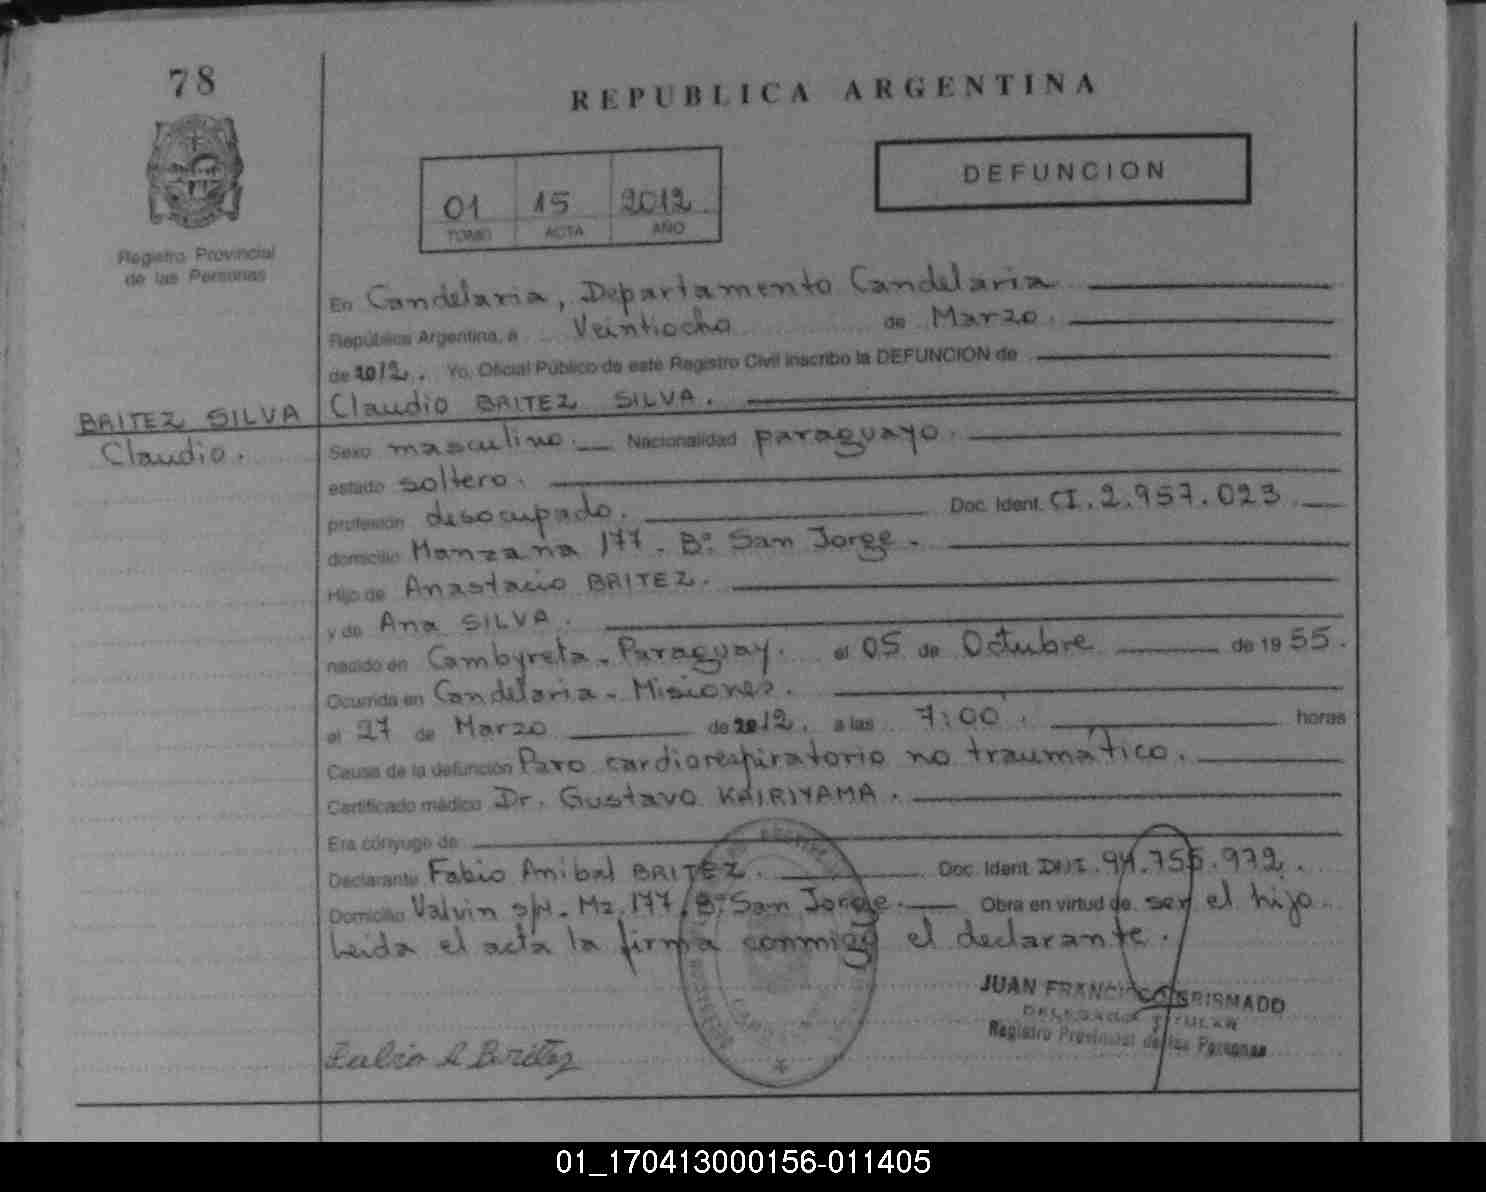 78
REPUBLICA ARGENTINA
Registro Provincial
de las Personas
01 15 2012
TOMO ACTA AÑO
DEFUNCION
En Candelaria, Departamento Candelaria
República Argentina, a Veintiocho de Marzo.
de 2012. Yo, Oficial Público de este Registro Civil inscribo la DEFUNCION de
BRITEZ SILVA
Claudio.
Claudio BRITEZ SILVA.
Sexo masculino. Nacionalidad paraguayo.
estado soltero.
profesión desocupado. Doc. Ident. CI. 2.957.023
domicilio Manzana 177. Bº San Jorge.
Hijo de Anastacio BRITEZ.
y de Ana SILVA.
nacido en Cambyreta - Paraguay. el 05 de Octubre de 1955.
Ocurrida en Candelaria - Misiones.
el 27 de Marzo de 2012. a las 7:00. horas
Causa de la defunción Paro cardiorespiratorio no traumático.
Certificado médico Dr. Gustavo KAIRIYAMA.
Era cónyuge de
Declarante Fabio Anibal BRITEZ. Doc. Ident. DNI. 94.755.972.
Domicilio Valvin s/N. Mz. 177. Bº San Jorge. Obra en virtud de ser el hijo.
Leida el acta la firma conmigo el declarante.
JUAN FRANCISCO GRISMADO
DELEGADO TITULAR
Registro Provincial de las Personas
Fabio A Britez
01_170413000156-011405